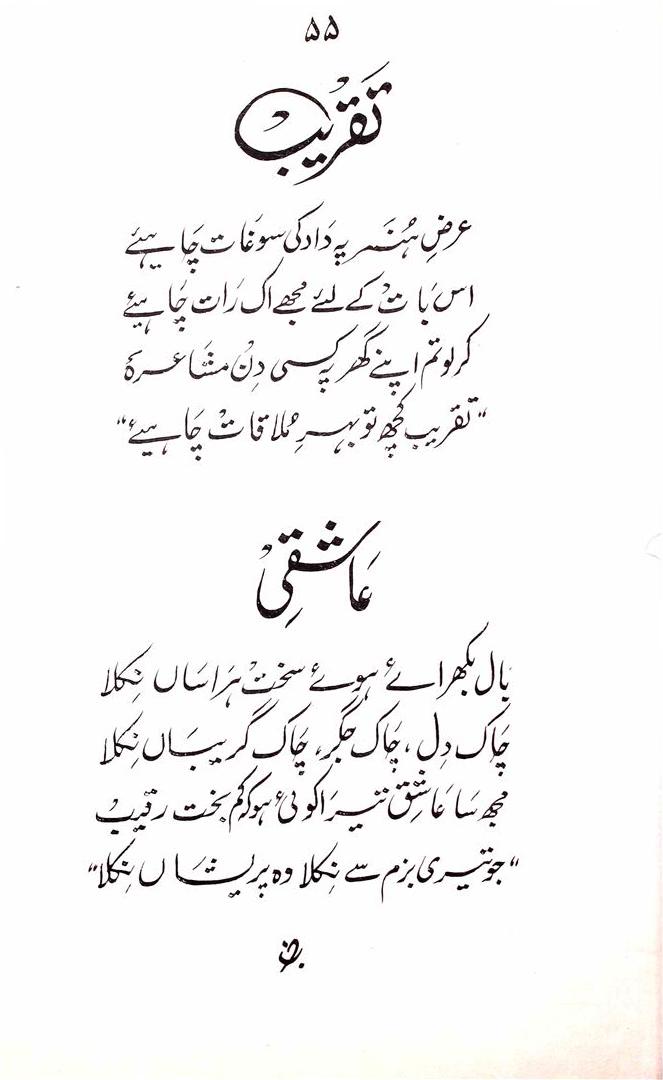 ۵۵
تقریب
عرضِ ہُنَر پہ دَاد کی سوغات چَاہیئے
اس بَات کے لئے مجھے اک رَات چَاہیئے
کر لو تم اپنے گھر پہ کسی دِن مشاعرہ
"تقریب کچھ تو بہرِ مُلاقات چَاہیئے"
عَاشقِی
بال بکھرائے ہوئے سخت ہَراسَاں نِکلا
چَاک دِل، چَاک جگر، چَاک گریبَاں نِکلا
مجھ سَا عَاشِق تیرا کوئی ہو کہ کم بخت رقیب
"جو تیری بزم سے نِکلا وہ پریشَاں نِکلا"